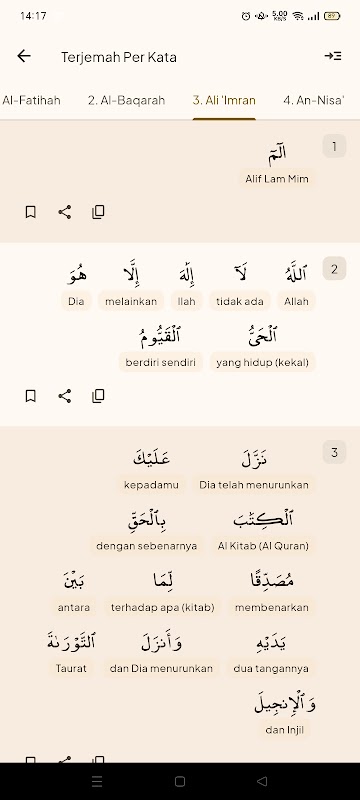 14:17 5.00 KB/S 89
Terjemah Per Kata
Al-Fatihah 2. Al-Baqarah 3. Ali 'Imran 4. An-Nisa'
الٓمٓ 1
Alif Lam Mim
ٱللَّهُ لَآ إِلَٰهَ إِلَّا هُوَ 2
Allah tidak ada Ilah melainkan Dia
ٱلْحَىُّ ٱلْقَيُّومُ
yang hidup (kekal) berdiri sendiri
نَزَّلَ عَلَيْكَ 3
Dia telah menurunkan kepadamu
ٱلْكِتَٰبَ بِٱلْحَقِّ
Al Kitab (Al Quran) dengan sebenarnya
مُصَدِّقًا لِّمَا بَيْنَ
membenarkan terhadap apa (kitab) antara
يَدَيْهِ وَأَنزَلَ ٱلتَّوْرَىٰةَ
dua tangannya dan Dia menurunkan Taurat
وَٱلْإِنجِيلَ
dan Injil